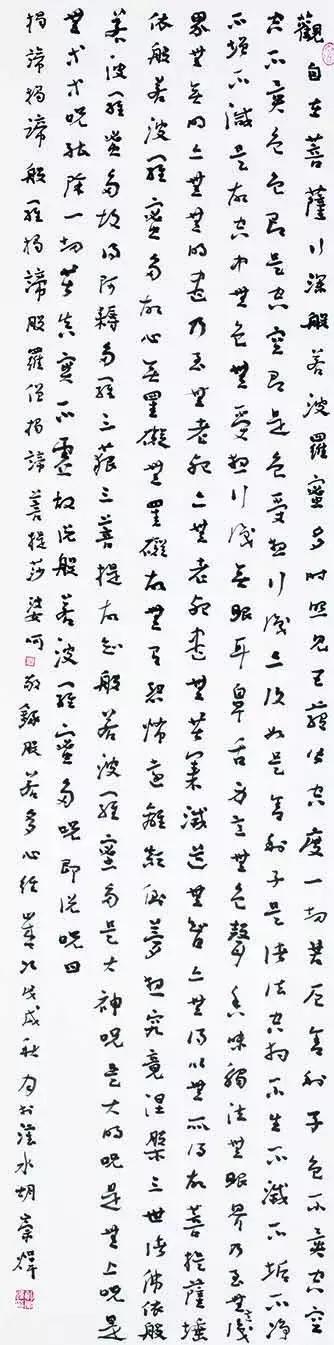 觀自在菩薩行深般若波羅蜜多時照見五蘊皆空度一切苦厄舍利子色不異空空
空不異色色即是空空即是色受想行識亦復如是舍利子是諸法空相不生不滅不垢不净
不增不減是故空中無色無受想行識無眼耳鼻舌身意無色聲香味觸法無眼界乃至無意識
界無無明亦無無明盡乃至無老死亦無老死盡無苦集滅道無智亦無得以無所得故菩提薩埵
依般若波羅蜜多故心無罣礙無罣礙故無有恐怖遠離顛倒夢想究竟涅槃三世諸佛依般
若波羅蜜多故得阿耨多羅三藐三菩提故知般若波羅蜜多是大神咒是大明咒是無上咒是
無等等咒能除一切苦真實不虛故說般若波羅蜜多咒即說咒曰
揭諦揭諦般羅揭諦般羅僧揭諦菩提莎婆呵敬錄般若多心經歲次戊戌秋月於滏水胡崇輝